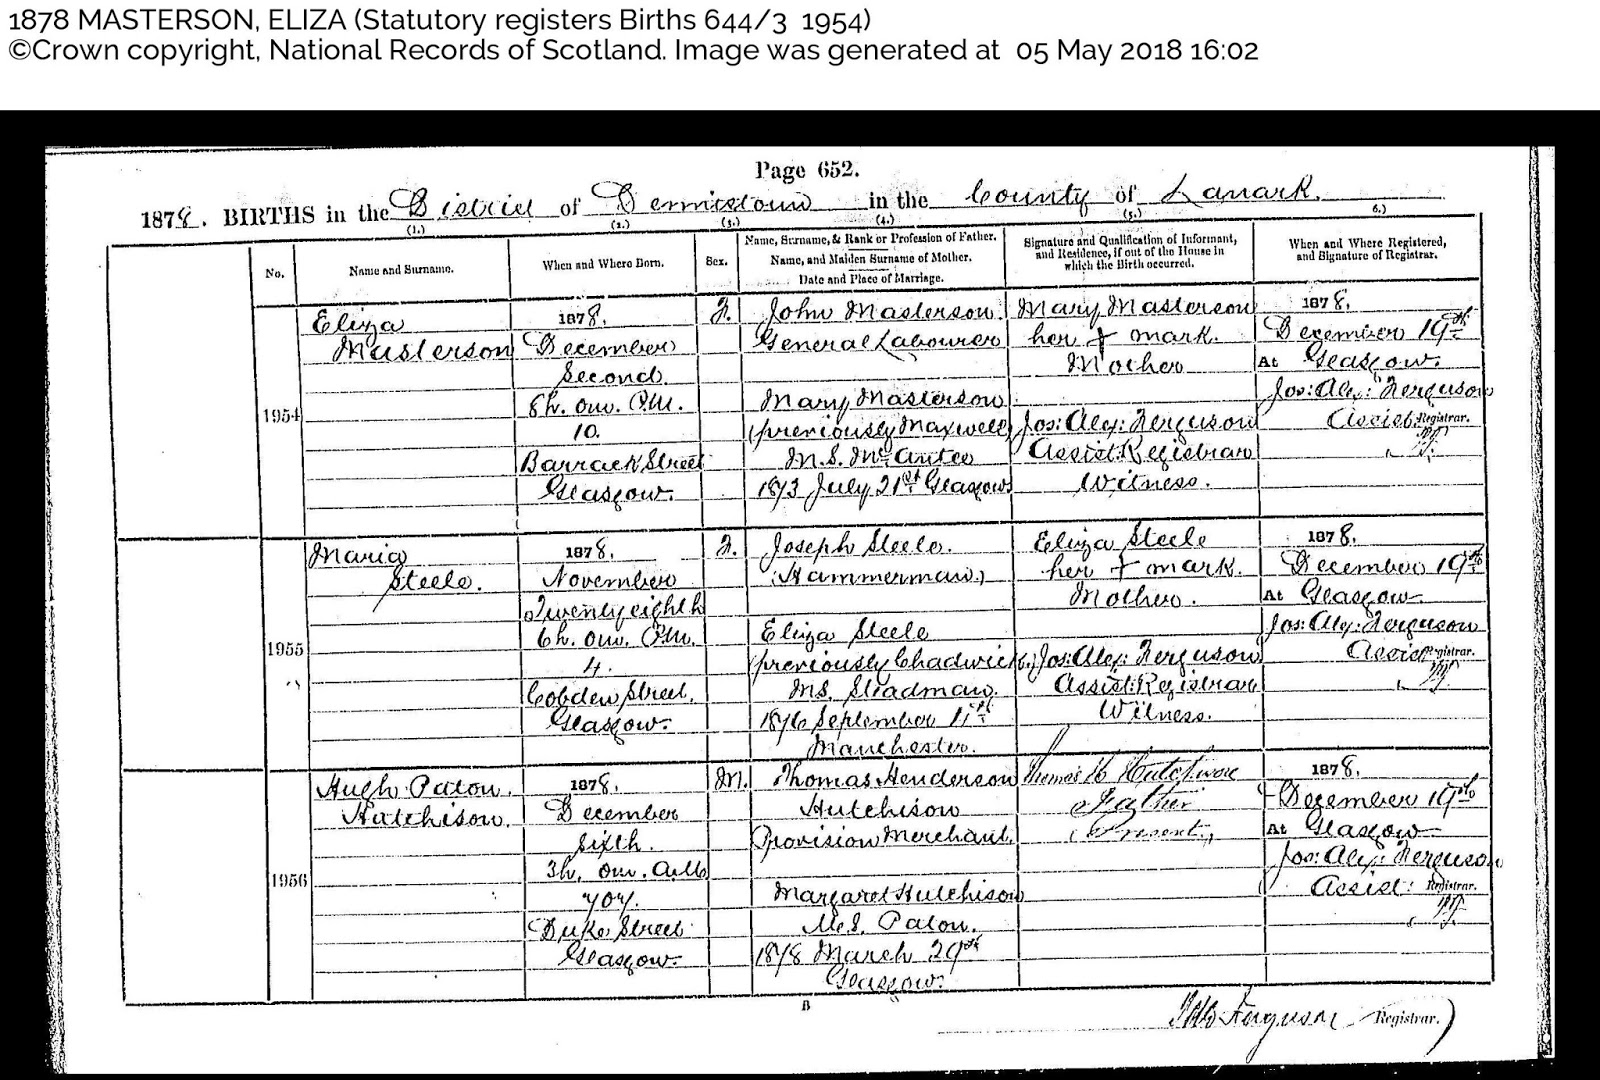 1878 MASTERSON, ELIZA (Statutory registers Births 644/3 1954)
©Crown copyright, National Records of Scotland. Image was generated at 05 May 2018 16:02
Page 652.
1878. BIRTHS in the District of Dennistoun in the County of Lanark.
(1.) (2.) (3.) (4.) (5.) 6.)
No.
Name and Surname.
When and Where Born.
Sex.
Name, Surname, & Rank or Profession of Father.
Name, and Maiden Surname of Mother.
Date and Place of Marriage.
Signature and Qualification of Informant,
and Residence, if out of the House in
which the Birth occurred.
When and Where Registered,
and Signature of Registrar.
1954
Eliza
Masterson
1878.
December
Second.
8h. 0m. P.M.
10.
Barrack Street
Glasgow.
F.
John Masterson
General Labourer
Mary Masterson
(previously Maxwell)
M.S. McAntee
1873 July 21st Glasgow
Mary Masterson
her + mark.
Mother
Jos: Alex: Ferguson
Assist: Registrar
Witness.
1878.
December 19th
At Glasgow.
Jos: Alex: Ferguson
Assist Registrar.
1955
Maria
Steele.
1878.
November
Twenty eighth
6h. 0m. P.M.
4.
Cobden Street.
Glasgow.
F.
Joseph Steele.
(Hammerman)
Eliza Steele
(previously Chadwick)
M.S. Steadman.
1876 September 11th
Manchester.
Eliza Steele
her + mark.
Mother.
Jos: Alex: Ferguson
Assist: Registrar
Witness.
1878.
December 19th
At Glasgow
Jos: Alex: Ferguson
Assist Registrar.
1956
Hugh Paton.
Hutchison.
1878.
December
Sixth.
3h. 0m. A.M.
707.
Duke Street
Glasgow.
M.
Thomas Henderson
Hutchison
Provision Merchant.
Margaret Hutchison
M.S. Paton.
1878 March 29th
Glasgow.
Thomas H Hutchison
Father
(Present)
1878.
December 19th
At Glasgow
Jos: Alex: Ferguson
Assist: Registrar.
B
Ferguson Registrar.)